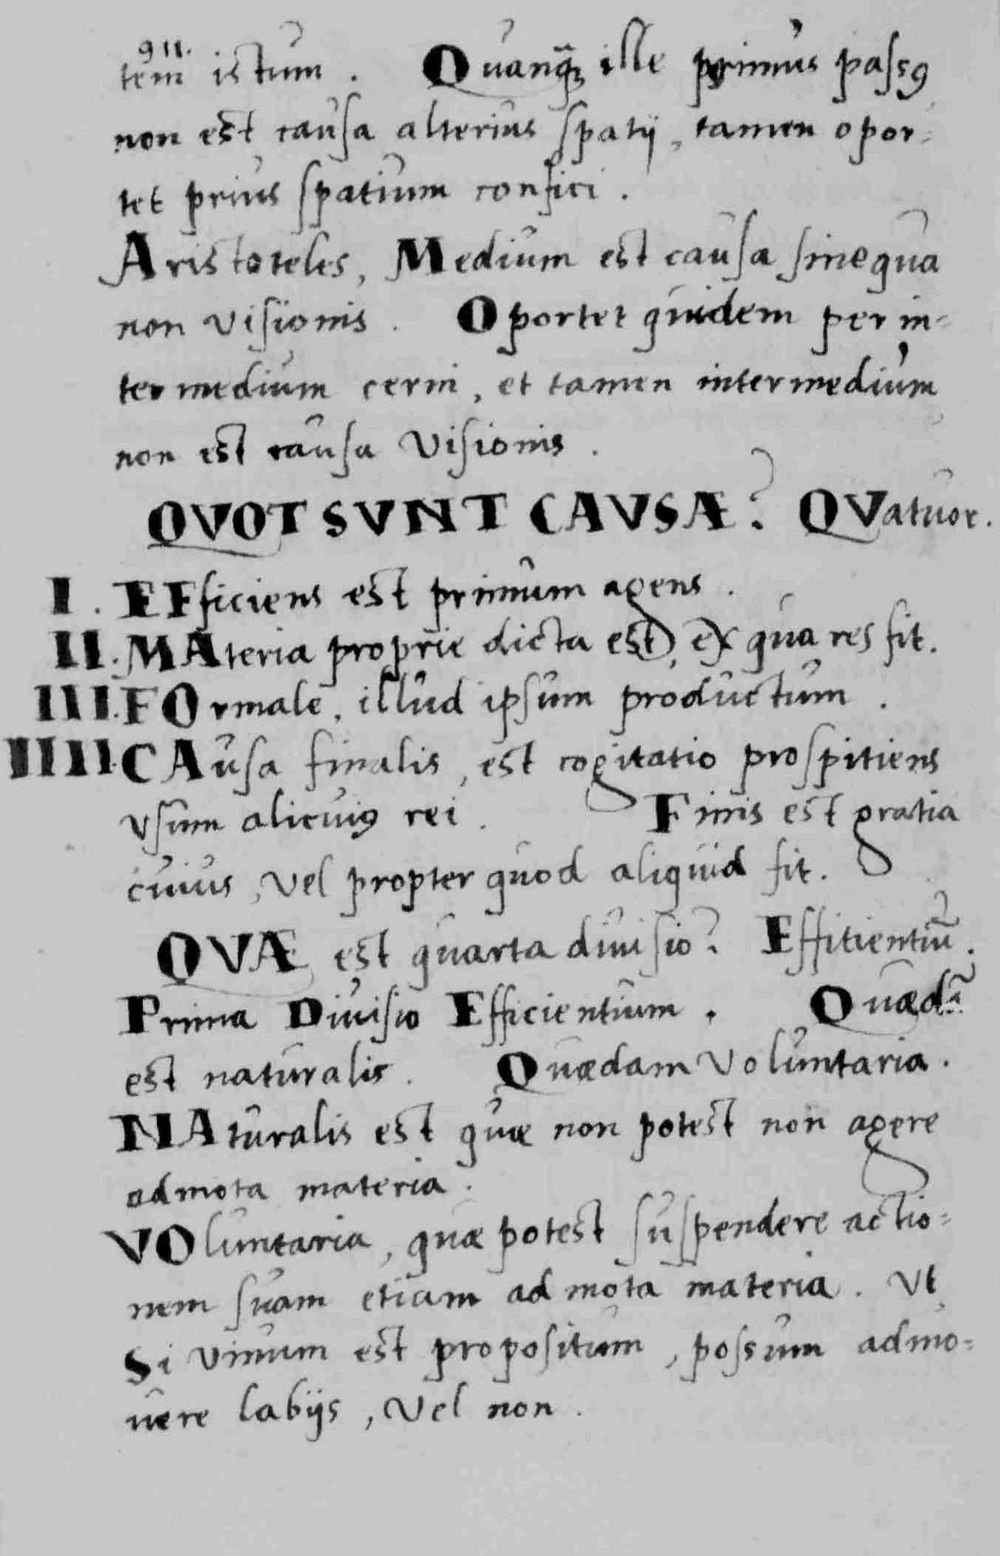 911.
tem istum. Quanq̃ ille primus passꝰ
non est causa alterius spatij, tamen opor-
tet prius spatium confici.
Aristoteles, Medium est causa sine qua
non visionis. Oportet quidem per in-
termedium cerni, et tamen intermedium
non est causa Visionis.
QVOT SVNT CAVSÆ? QVatuor.
I. EFficiens est primum agens.
II. MAteria proprie dicta est, ex qua res fit.
III. FOrmale, illud ipsum productum.
IIII. CAusa finalis, est cogitatio prospitiens
vsum alicuiꝰ rei. Finis est gratia
cuius, Vel propter quod aliquid fit.
QVÆ est quarta diuisio? Effitientiũ.
Prima Diuisio Efficientium. Quædã
est naturalis. Quædam Voluntaria.
NAturalis est quæ non potest non agere
admota materia.
VOluntaria, quæ potest suspendere actio-
nem suam etiam admota materia. Vt
Si vinum est propositum, possum admo-
uere labijs, Vel non.